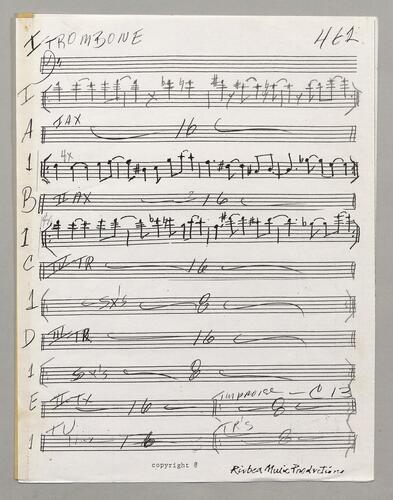 I TROMBONE 461
I
A I AX 16
1 4x
B II AX 16
1
C IV TR 16
1 SX's 8
D III TR 16
1 SX's 8
E II TX 16 IMPROVISE — C 13 8
1 16 TR'S 8
copyright @ Rivbea Music Productions